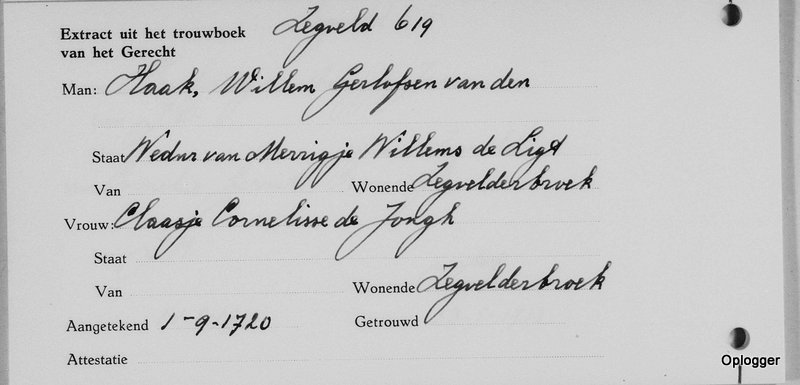 Extract uit het trouwboek Zegveld 619
van het Gerecht
Man: Haak, Willem Gerlofsen van den
Staat Wednr van Merrigje Willems de Ligt
Van Wonende Zegvelderbroek
Vrouw: Claasje Cornelisse de Jongh
Staat
Van Wonende Zegvelderbroek
Aangetekend 1-9-1720 Getrouwd
Attestatie
Oplogger